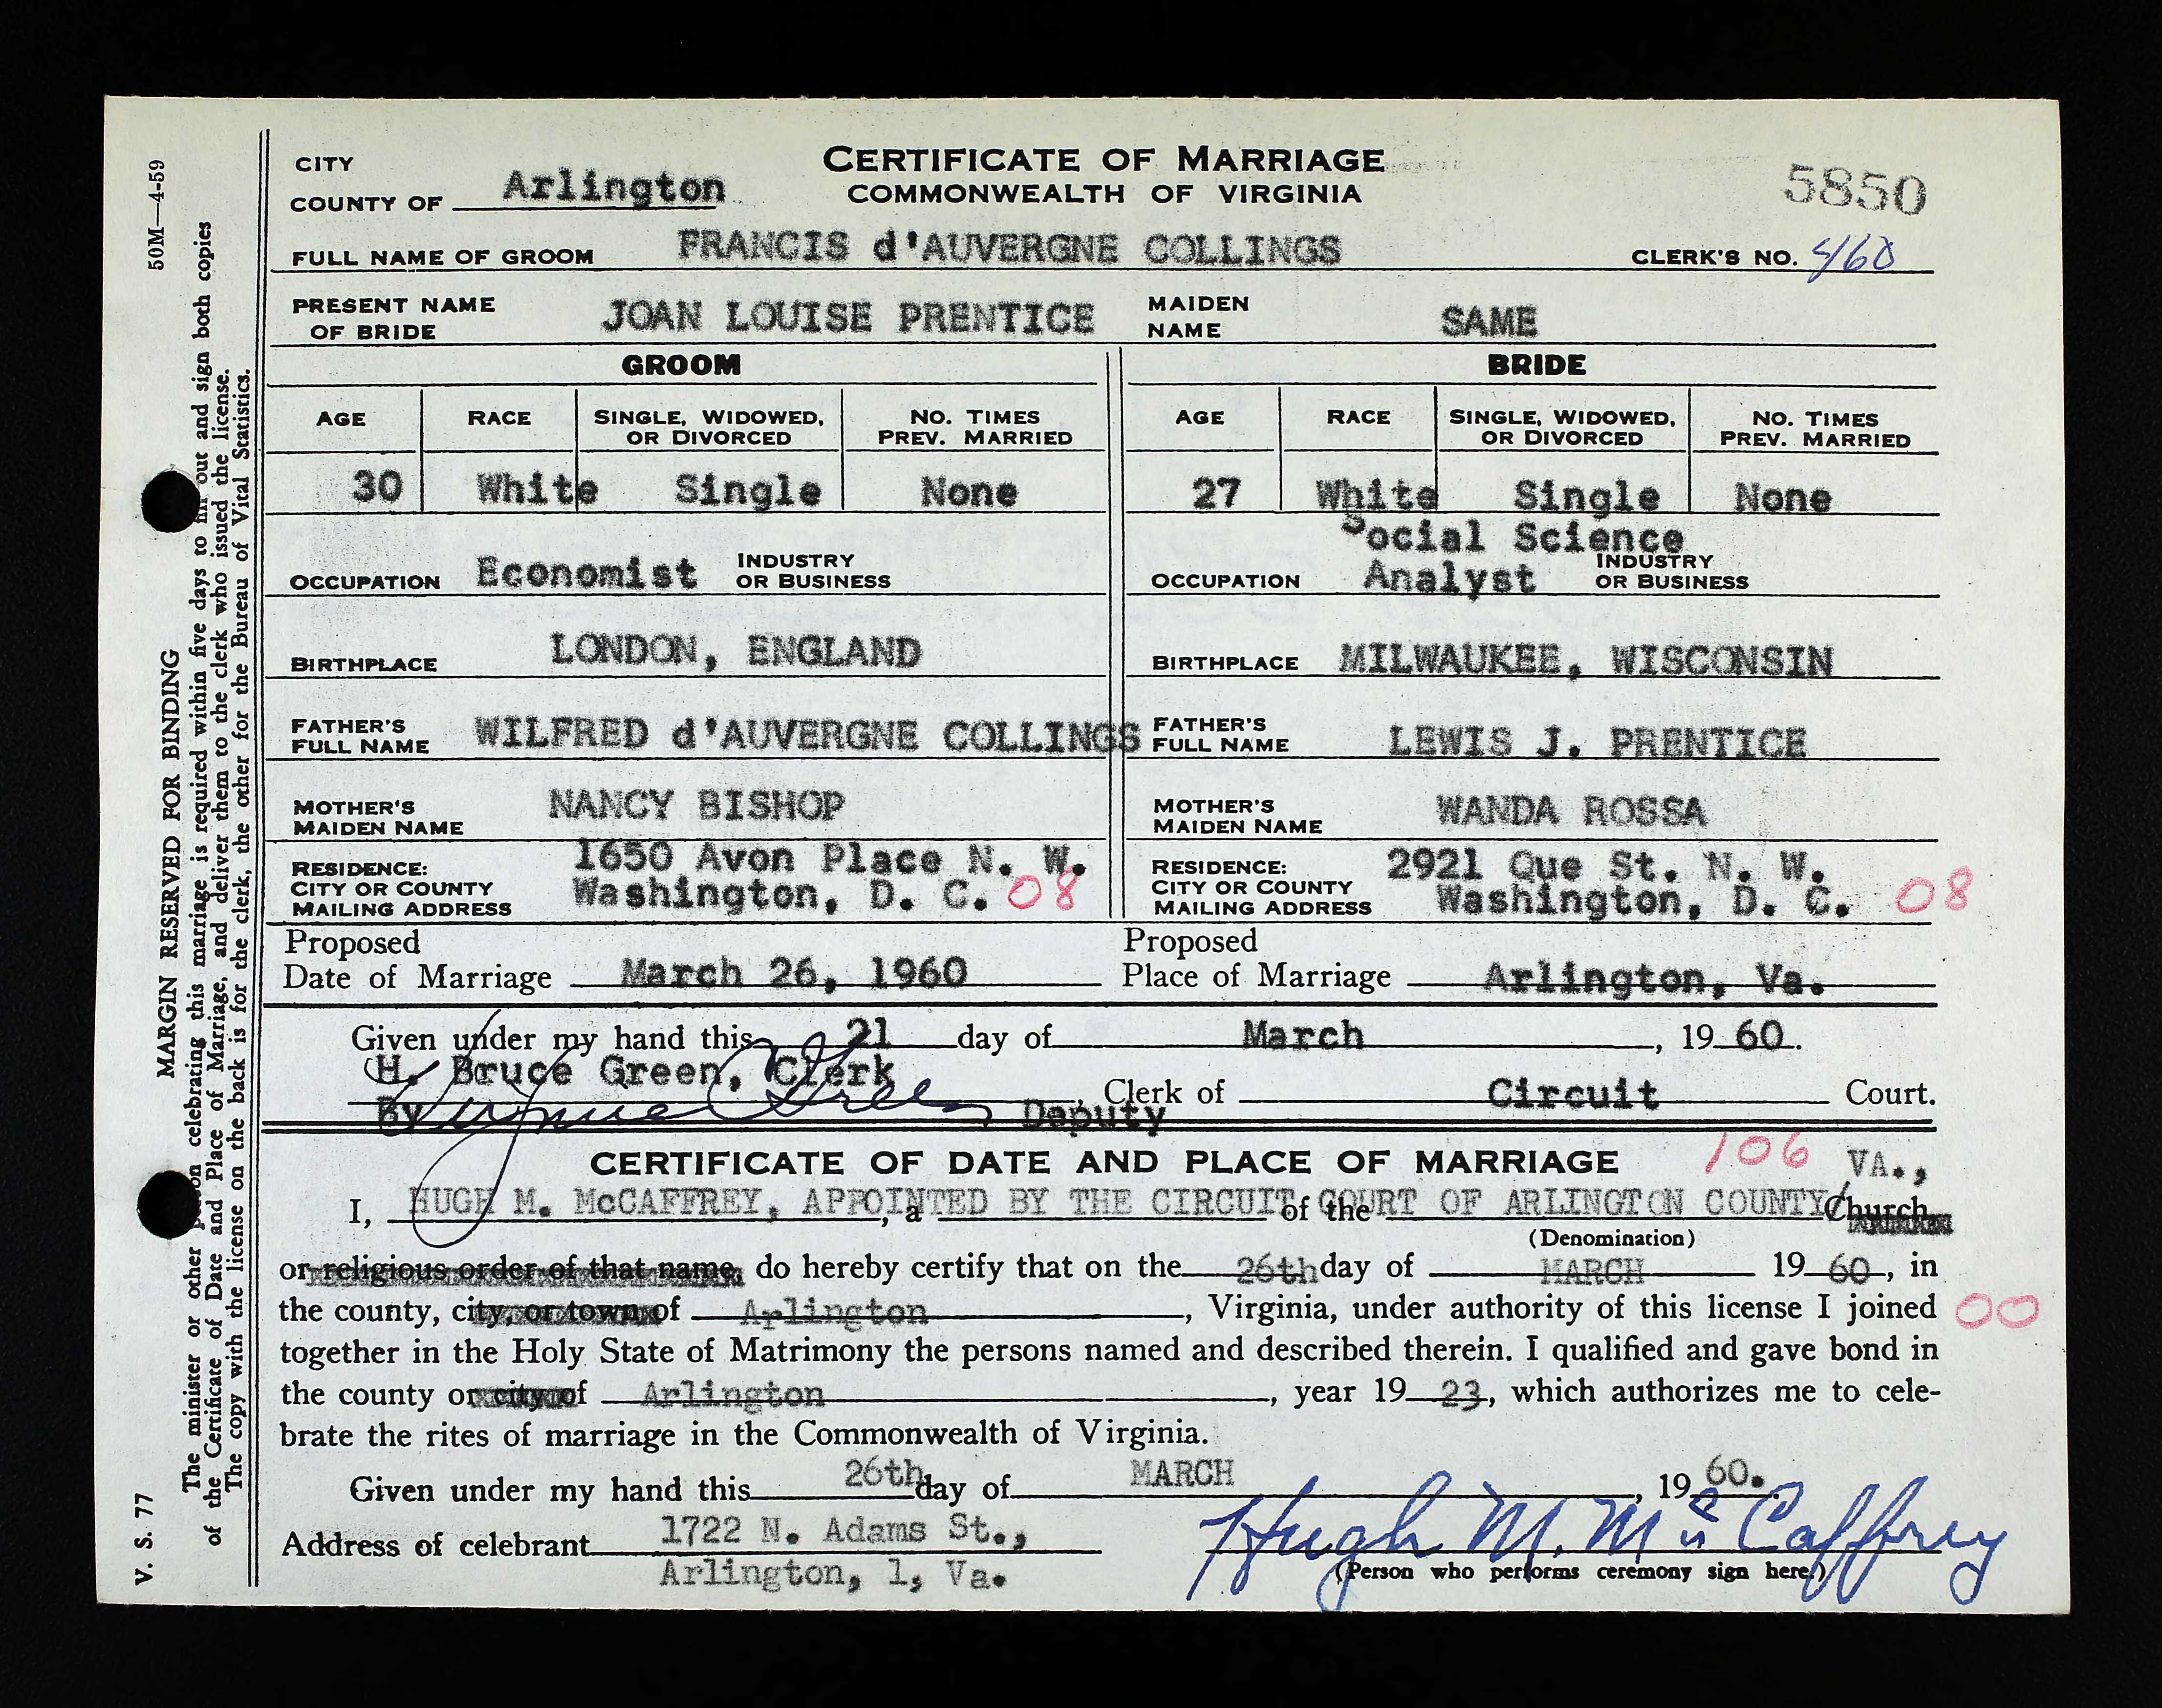 CITY
COUNTY OF Arlington
CERTIFICATE OF MARRIAGE
COMMONWEALTH OF VIRGINIA
5850
FULL NAME OF GROOM FRANCIS d'AUVERGNE COLLINGS CLERK'S NO. 460
PRESENT NAME OF BRIDE JOAN LOUISE PRENTICE MAIDEN NAME SAME
GROOM BRIDE
AGE RACE SINGLE, WIDOWED, OR DIVORCED NO. TIMES PREV. MARRIED AGE RACE SINGLE, WIDOWED, OR DIVORCED NO. TIMES PREV. MARRIED
30 White Single None 27 White Single None
OCCUPATION Economist INDUSTRY OR BUSINESS OCCUPATION Social Science Analyst INDUSTRY OR BUSINESS
BIRTHPLACE LONDON, ENGLAND BIRTHPLACE MILWAUKEE, WISCONSIN
FATHER'S FULL NAME WILFRED d'AUVERGNE COLLINGS FATHER'S FULL NAME LEWIS J. PRENTICE
MOTHER'S MAIDEN NAME NANCY BISHOP MOTHER'S MAIDEN NAME WANDA ROSSA
RESIDENCE: CITY OR COUNTY MAILING ADDRESS 1650 Avon Place N. W. Washington, D. C. 08 RESIDENCE: CITY OR COUNTY MAILING ADDRESS 2921 Que St. N. W. Washington, D. C. 08
Proposed Date of Marriage March 26, 1960 Proposed Place of Marriage Arlington, Va.
Given under my hand this 21 day of March, 19 60.
H. Bruce Green, Clerk
By Deputy, Clerk of Circuit Court.
CERTIFICATE OF DATE AND PLACE OF MARRIAGE 106 VA.,
I, HUGH M. McCAFFREY, APPOINTED BY THE CIRCUIT COURT OF ARLINGTON COUNTY/, a of the Church
(Denomination)
or religious order of that name, do hereby certify that on the 26th day of MARCH 19 60, in
the county, city, or town of Arlington, Virginia, under authority of this license I joined 00
together in the Holy State of Matrimony the persons named and described therein. I qualified and gave bond in
the county or city of Arlington, year 19 23, which authorizes me to cele-
brate the rites of marriage in the Commonwealth of Virginia.
Given under my hand this 26th day of MARCH, 19 60.
Address of celebrant 1722 N. Adams St., Hugh M. McCaffrey
Arlington, 1, Va. (Person who performs ceremony sign here.)
V. S. 77 MARGIN RESERVED FOR BINDING 50M—4-59
The minister or other person celebrating this marriage is required within five days to fill out and sign both copies
of the Certificate of Date and Place of Marriage, and deliver them to the clerk who issued the license.
The copy with the license on the back is for the clerk, the other for the Bureau of Vital Statistics.